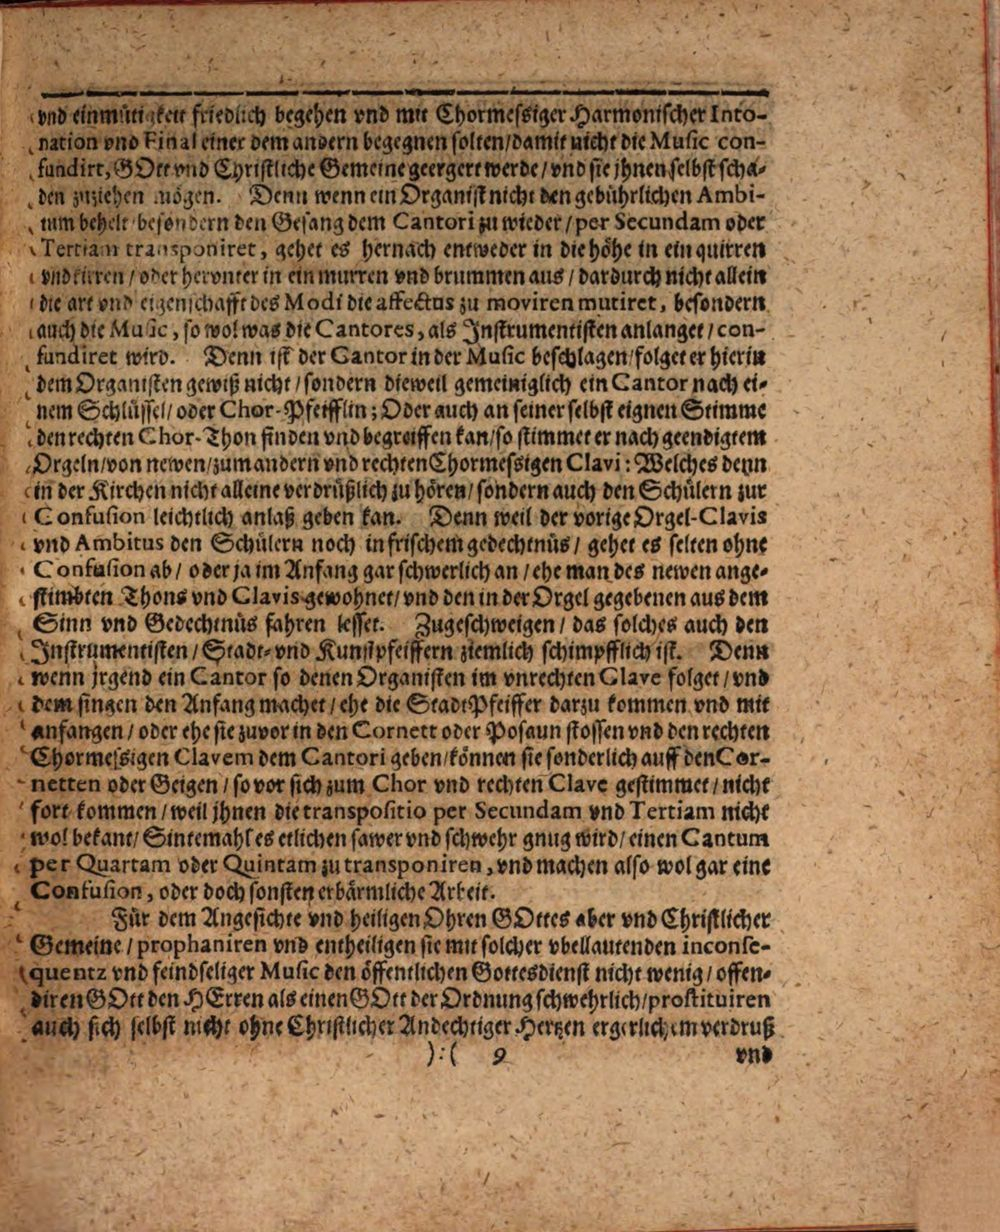 vnd einmütigkeit friedlich begehen vnd mit Chormessiger Harmonischer Into-
nation vnd Final einer dem andern begegnen solten/damit nicht die Music con-
fundirt, GOtt vnd Christliche Gemeine geergert werde/vnd sie jhnen selbst scha-
den zuziehen mögen. Denn wenn ein Organist nicht den gebührlichen Ambi-
tum behelt besondern den Gesang dem Cantori zu wieder/per Secundam oder
Tertiam transponiret, gehet es hernach entweder in die höhe in ein quirren
vnd kirren/oder herunter in ein murren vnd brummen aus/dardurch nicht allein
die art vnd eigenschafft des Modi die affectus zu moviren mutiret, besondern
auch die Music, so wol was die Cantores, als Jnstrumentisten anlanget/con-
fundiret wird. Denn ist der Cantor in der Music beschlagen/folget er hierin
dem Organisten gewiß nicht/sondern dieweil gemeiniglich ein Cantor nach ei-
nem Schlüssel/oder Chor-Pfeifflin; Oder auch an seiner selbst eignen Stimme
den rechten Chor-Thon finden vnd begreiffen kan/so stimmet er nach geendigtem
Orgeln/von newen/zum andern vnd rechten Chormessigen Clavi: Welches denn
in der Kirchen nicht alleine verdrüßlich zu hören/sondern auch den Schülern zur
Confusion leichtlich anlaß geben kan. Denn weil der vorige Orgel-Clavis
vnd Ambitus den Schülern noch in frischem gedechtnüs/gehet es selten ohne
Confusion ab/oder ja im Anfang gar schwerlich an/ehe man des newen ange-
stimbten Thons vnd Clavis gewohnet/vnd den in der Orgel gegebenen aus dem
Sinn vnd Gedechtnüs fahren lesset. Zugeschweigen/das solches auch den
Jnstrumentisten/Stadt-vnd Kunstpfeiffern ziemlich schimpfflich ist. Denn
wenn jrgend ein Cantor so denen Organisten im vnrechten Clave folget/vnd
dem singen den Anfang machet/ehe die StadtPfeiffer darzu kommen vnd mit
anfangen/oder ehe sie zuvor in den Cornett oder Posaun stossen vnd den rechten
Chormessigen Clavem dem Cantori geben/können sie sonderlich auff den Cor-
netten oder Geigen/so vor sich zum Chor vnd rechten Clave gestimmet/nicht
fort kommen/weil jhnen die transpositio per Secundam vnd Tertiam nicht
wol bekant/Sintemahl es etlichen sawer vnd schwehr gnug wird/einen Cantum
per Quartam oder Quintam zu transponiren, vnd machen also wol gar eine
Confusion, oder doch sonsten erbärmliche Arbeit.
Für dem Angesichte vnd heiligen Ohren GOttes aber vnd Christlicher
Gemeine/prophaniren vnd entheiligen sie mit solcher vbellautenden inconse-
quentz vnd feindseliger Music den öffentlichen Gottesdienst nicht wenig/offen-
diren GOtt den HErren als einen GOtt der Ordnung schwehrlich/prostituiren
auch sich selbst nicht ohne Christlicher Andechtiger Hertzen ergerlichem verdruß
):( 9 vnd